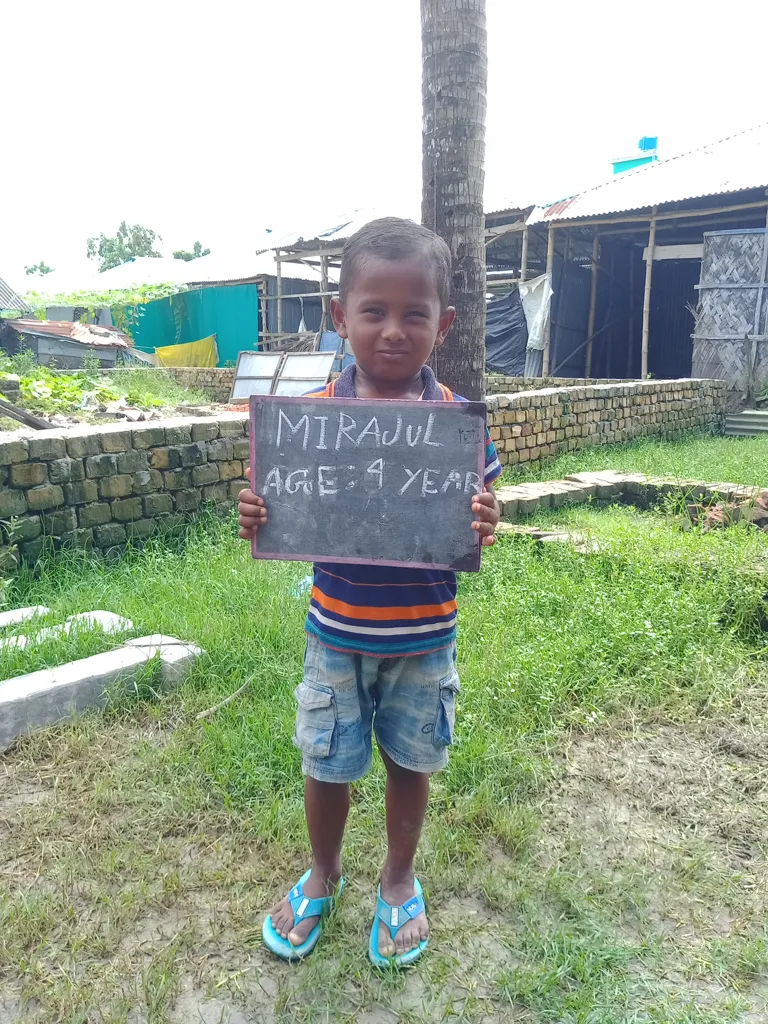 MIRAJUL
AGE: 4 YEAR